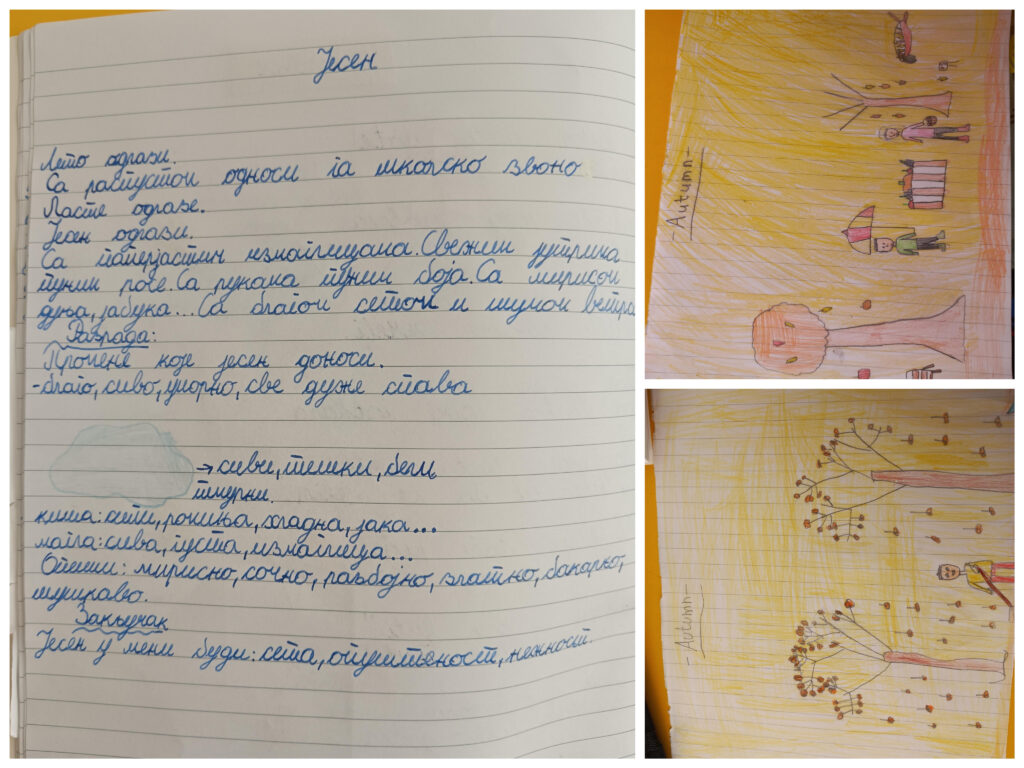 Јесен
Лето одлази.
Са распустом односи га школско звоно
Ласте одлазе.
Јесен одлази.
Са паперјастим измаглицама. Свежим јутрима
пуним росе. Са рукама пуним боја. Са мирисом
дуња, јабука... Са благом сетом и шумом ветра
Разрада:
Промене које јесен доноси.
-благо, сиво, уморно, све дуже спава
→ сиви, тешки, бели
тмурни.
киша: сипи, ромиња, хладна, јака...
магла: сива, густа, измаглица...
Описи: мирисно, сочно, разбојно, златно, бакарно,
шушкаво.
Закључак
Јесен у мени буди: сета, опуштеност, нежност.
-Autumn-
-Autumn-